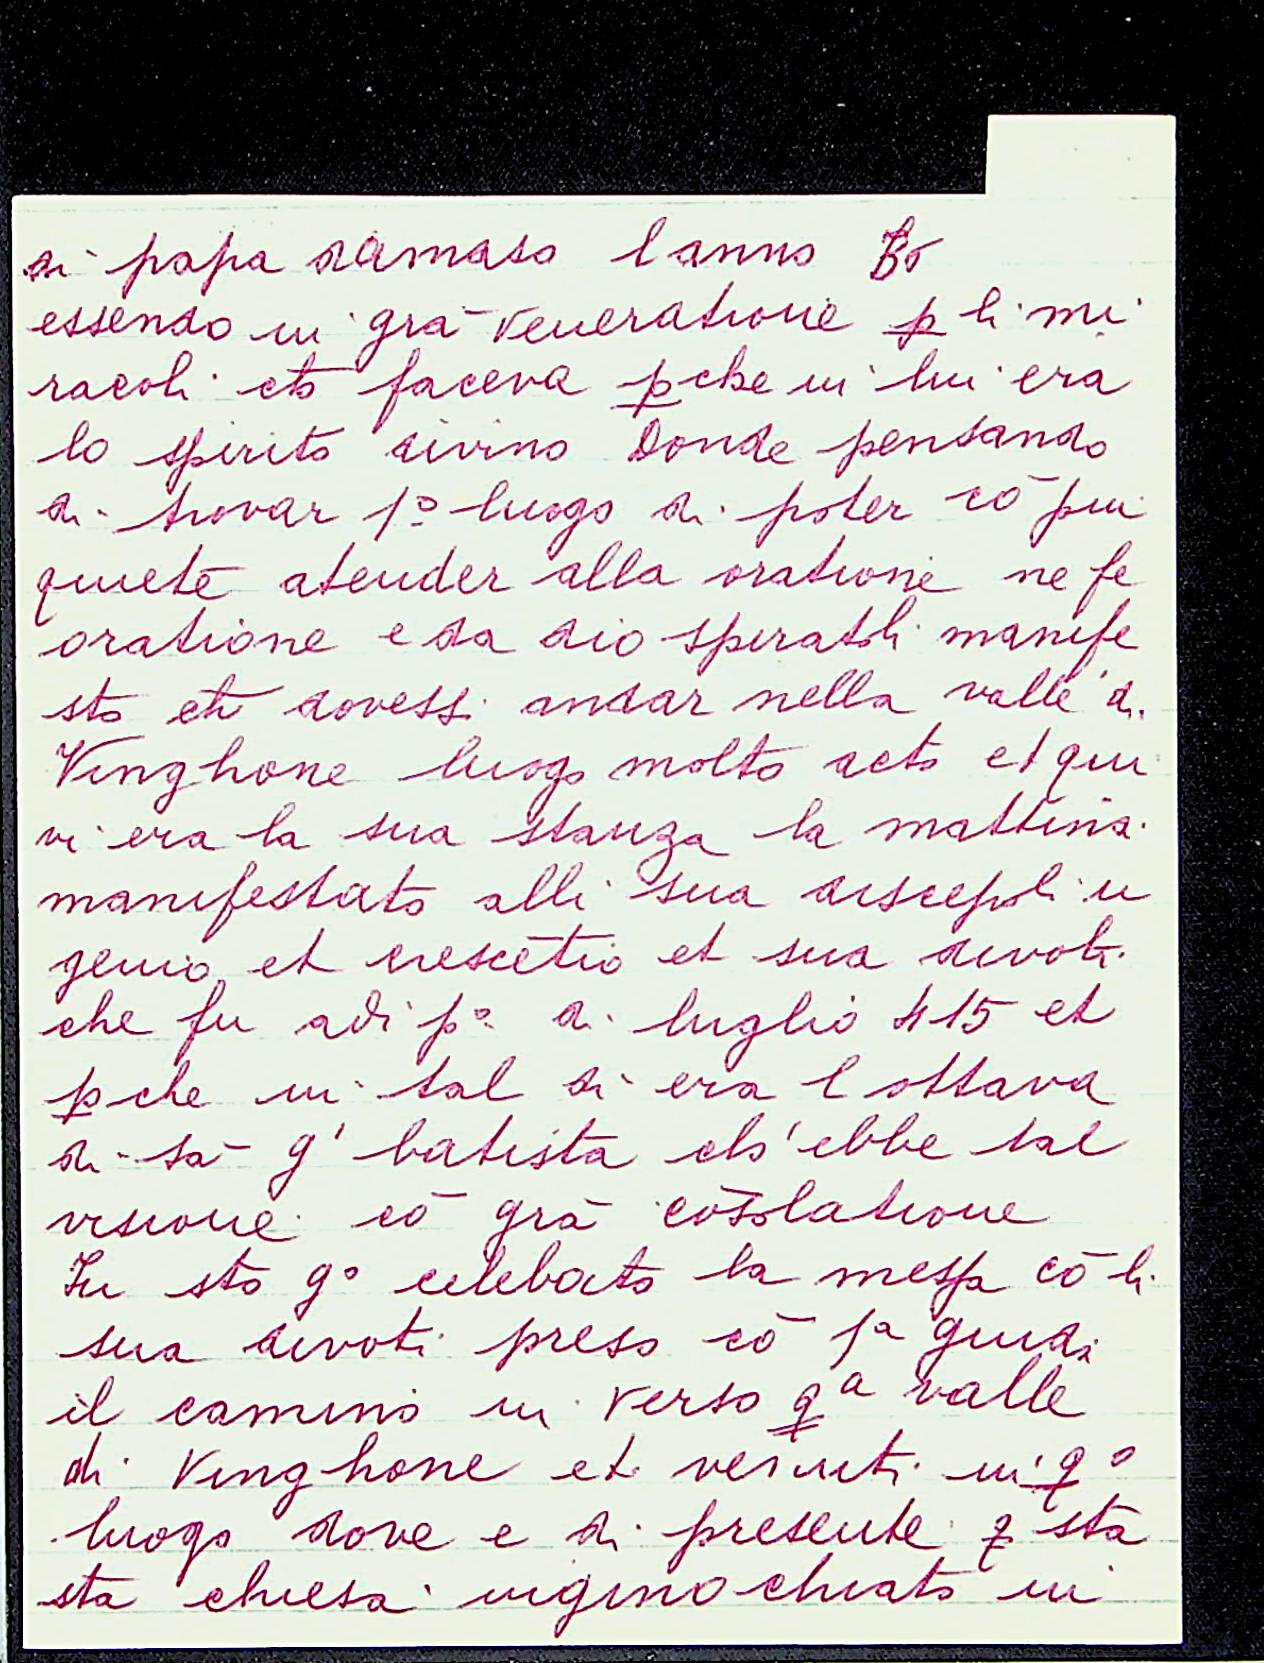 di papa damaso l anno Bō
essendo in grā veneratione p li mi
racoli cħ faceva pche in lui era
lo spirito divino Donde pensando
di trovar 1º luogo di poter cō piu
quiete atender alla oratione ne fe
oratione e da dio spiratoli manife
sto cħ dovessi andar nella valle di
Vinghone luogo molto acto et qui
vi era la sua stanza la mattina
manifestato alli sua discepoli u
genio et crescētio et sua divoti
che fu adi pº di luglio 415 et
pche in tal di era l ottava
di sā g' batista ch' ebbe tal
visione cō grā cōsolatione
In sto gº celebato la messa cō li
sua divoti preso cō 1ª guida
il camino in verso qª valle
di Vinghone et venuti in qº
luogo dove e di presente q sta
sta chiesa inginochiato in